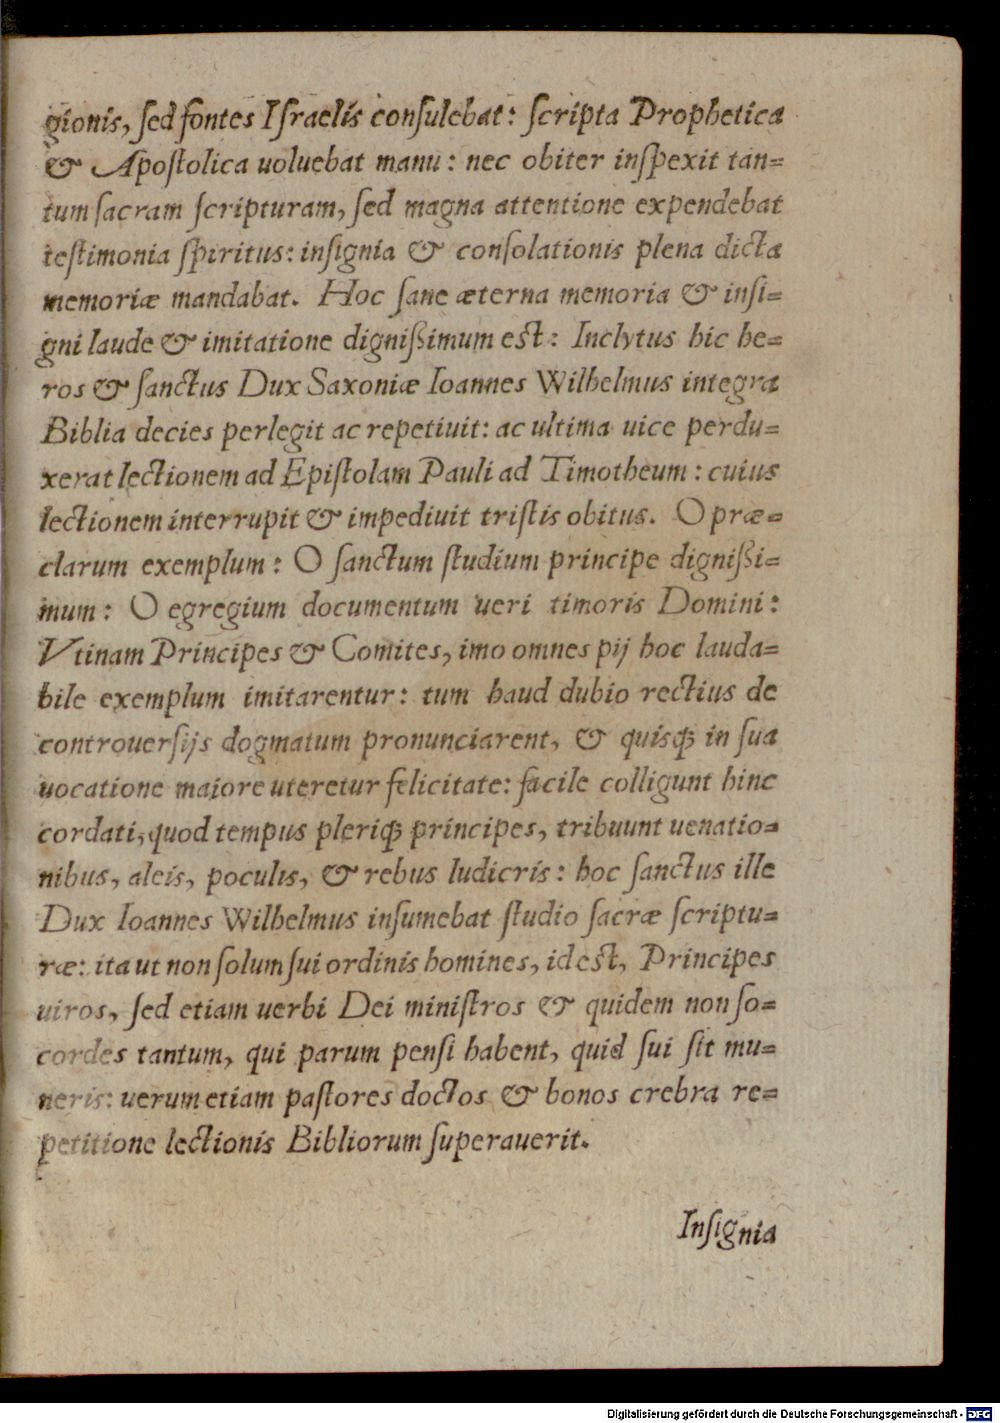 gionis, ſed fontes Iſraelis conſulebat: ſcripta Prophetica
& Apoſtolica uoluebat manu: nec obiter inſpexit tan=
tum ſacram ſcripturam, ſed magna attentione expendebat
teſtimonia ſpiritus: inſignia & conſolationis plena dicta
memoriæ mandabat. Hoc ſane æterna memoria & inſi=
gni laude & imitatione digniſsimum eſt: Inclytus hic he=
ros & ſanctus Dux Saxoniæ Ioannes Wilhelmus integra
Biblia decies perlegit ac repetiuit: ac ultima uice perdu=
xerat lectionem ad Epiſtolam Pauli ad Timotheum: cuius
lectionem interrupit & impediuit triſtis obitus. O præ=
clarum exemplum: O ſanctum ſtudium principe digniſsi=
mum: O egregium documentum ueri timoris Domini:
Vtinam Principes & Comites, imo omnes pij hoc lauda=
bile exemplum imitarentur: tum haud dubio rectius de
controuerſijs dogmatum pronunciarent, & quisq́; in ſua
uocatione maiore uteretur felicitate: facile colligunt hinc
cordati, quod tempus pleriq́; principes, tribuunt uenatio=
nibus, aleis, poculis, & rebus ludicris: hoc ſanctus ille
Dux Ioannes Wilhelmus inſumebat ſtudio ſacræ ſcriptu=
ræ: ita ut non ſolum ſui ordinis homines, id eſt, Principes
uiros, ſed etiam uerbi Dei miniſtros & quidem non ſo=
cordes tantum, qui parum penſi habent, quid ſui ſit mu=
neris: uerum etiam paſtores doctos & bonos crebra re=
petitione lectionis Bibliorum ſuperauerit.
Inſignia
Digitalisierung gefördert durch die Deutsche Forschungsgemeinschaft - DFG